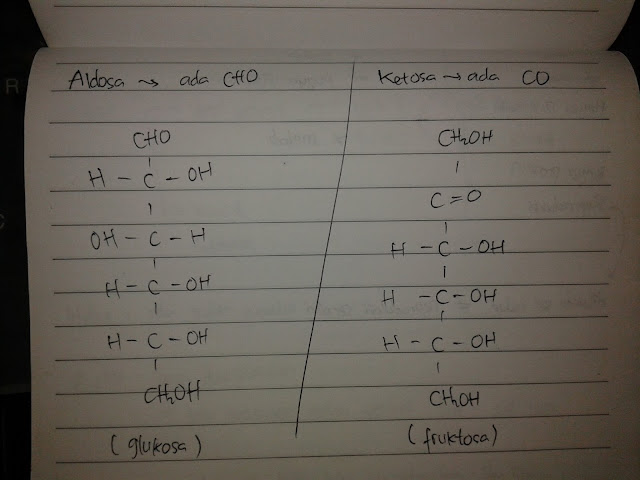 Aldosa → ada CHO
CHO
H – C – OH
OH – C – H
H – C – OH
H – C – OH
CH2OH
(glukosa)
Ketosa → ada CO
CH2OH
C = O
H – C – OH
H – C – OH
H – C – OH
CH2OH
(fruktosa)